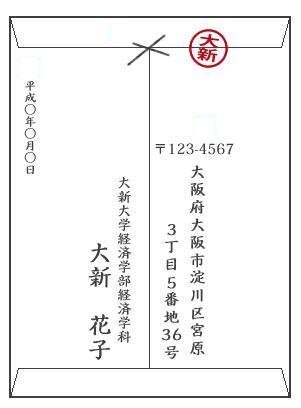 大新
〒123-4567
大阪府大阪市淀川区宮原
3丁目5番地36号
大新大学経済学部経済学科
大新 花子
平成〇年〇月〇日